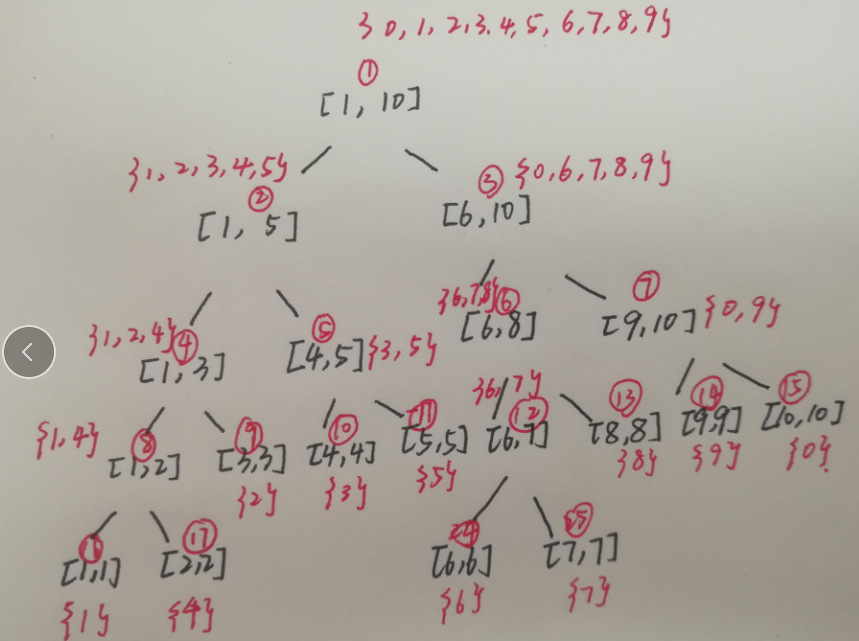 {0,1,2,3.4,5,6,7,8,9}
①
[1,10]
{1,2,3,4,5}
②
[1,5]
③ {0,6,7,8,9}
[6,10]
{1,2,4}
④
[1,3]
⑤
[4,5] {3,5}
{6,7,8}
⑥
[6,8]
⑦
[9,10] {0,9}
{1,4}
⑧
[1,2]
⑨
[3,3]
{2}
⑩
[4,4]
{3}
⑪
[5,5]
{5}
{6,7}
⑫
[6,7]
⑬
[8,8]
{8}
⑭
[9,9]
{9}
⑮
[10,10]
{0}
[1,1]
{1}
⑰
[2,2]
{4}
[6,6]
{6}
[7,7]
{7}